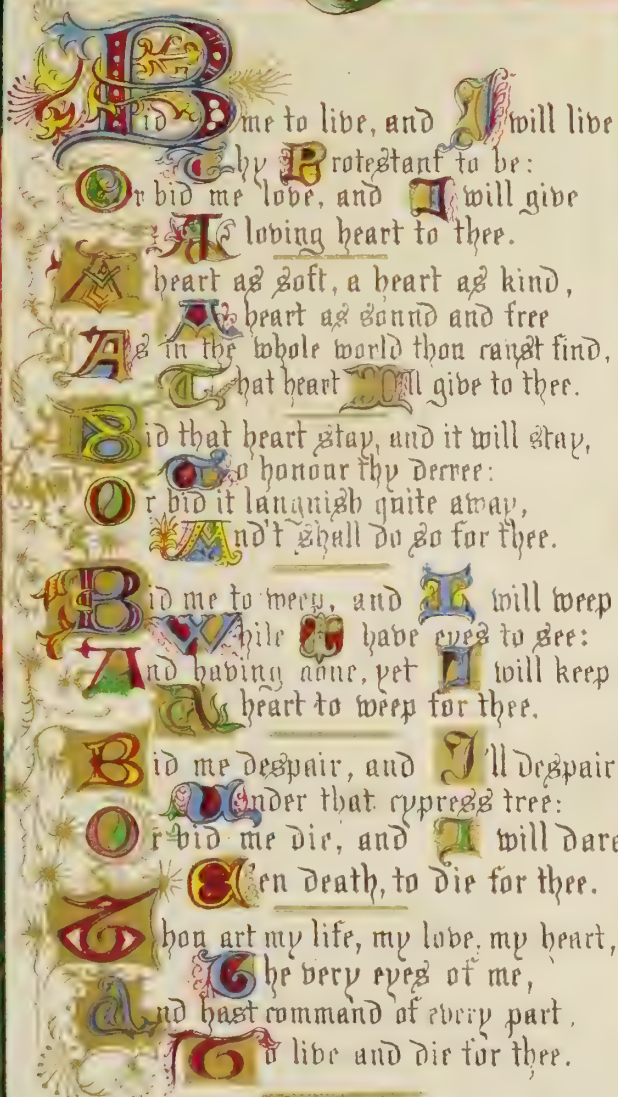 Bid me to live, and I will live
Thy Protestant to be:
Or bid me love, and I will give
A loving heart to thee.
A heart as soft, a heart as kind,
A heart as sound and free
As in the whole world thou canst find,
That heart I'll give to thee.
Bid that heart stay, and it will stay,
To honour thy decree:
Or bid it languish quite away,
And't shall do so for thee.
Bid me to weep, and I will weep
While I have eyes to see:
And having none, yet I will keep
A heart to weep for thee.
Bid me despair, and I'll despair
Under that cypress tree:
Or bid me die, and I will dare
E'en death, to die for thee.
Thou art my life, my love, my heart,
The very eyes of me,
And hast command of every part,
To live and die for thee.